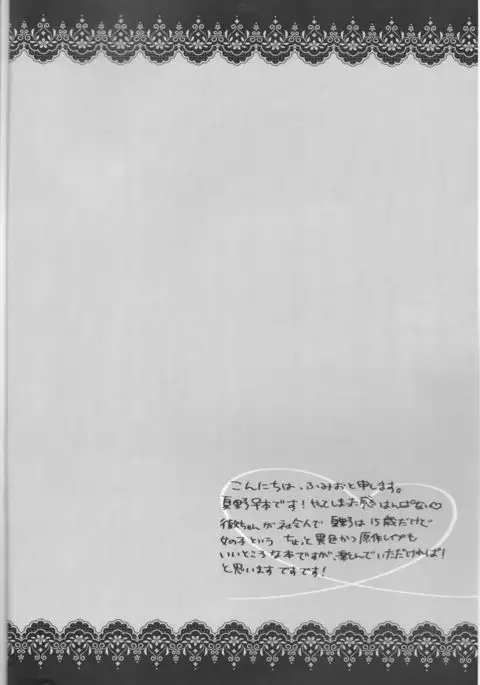 こんにちは、ふみおと申します。
夏野♀本です!やってしまった感はんぱない♡
徹ちゃんが社会人で夏野は15歳だけど
女の子という ちょっと異色かつ原作レイプも
いいところな本ですが、楽しんでいただければ!
と思いますですです!